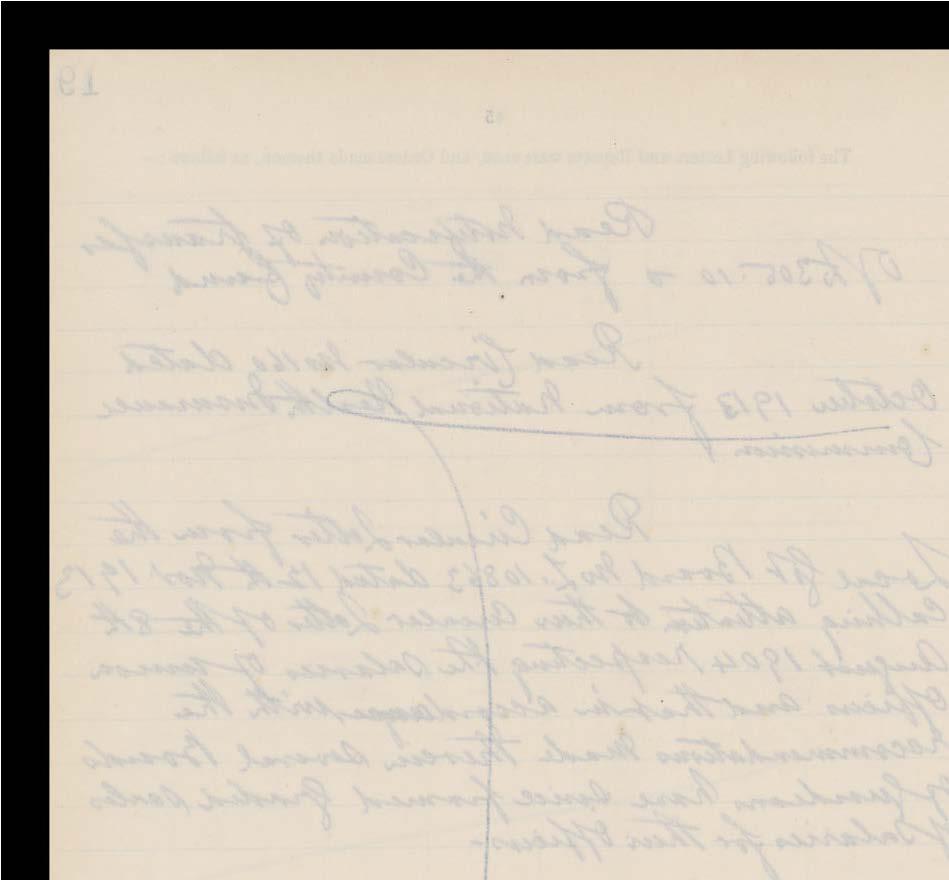 19
45
The following Letters and Reports were read, and Orders made thereon, as follows :—
Read Notification of transfer
of £305-10-0 from the County Fund
Read Circular No 162 dated
October 1913 from National Health Insurance
Commission
Read Circular Letter from the
Local Govt Board No 10863 dated 12th Nov 1913
Calling attention to their Circular Letter of the 8th
August 1904 respecting the Salaries of
Officers and that in accordance with the
recommendations made therein several Boards
of Guardians have since framed Graded Scales
of Salaries for their Officers-